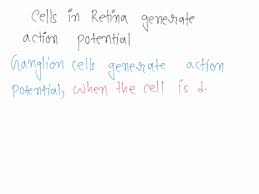 Cells in Retina generate
action potential
Ganglion cells generate action
Potential, when the cell is d.